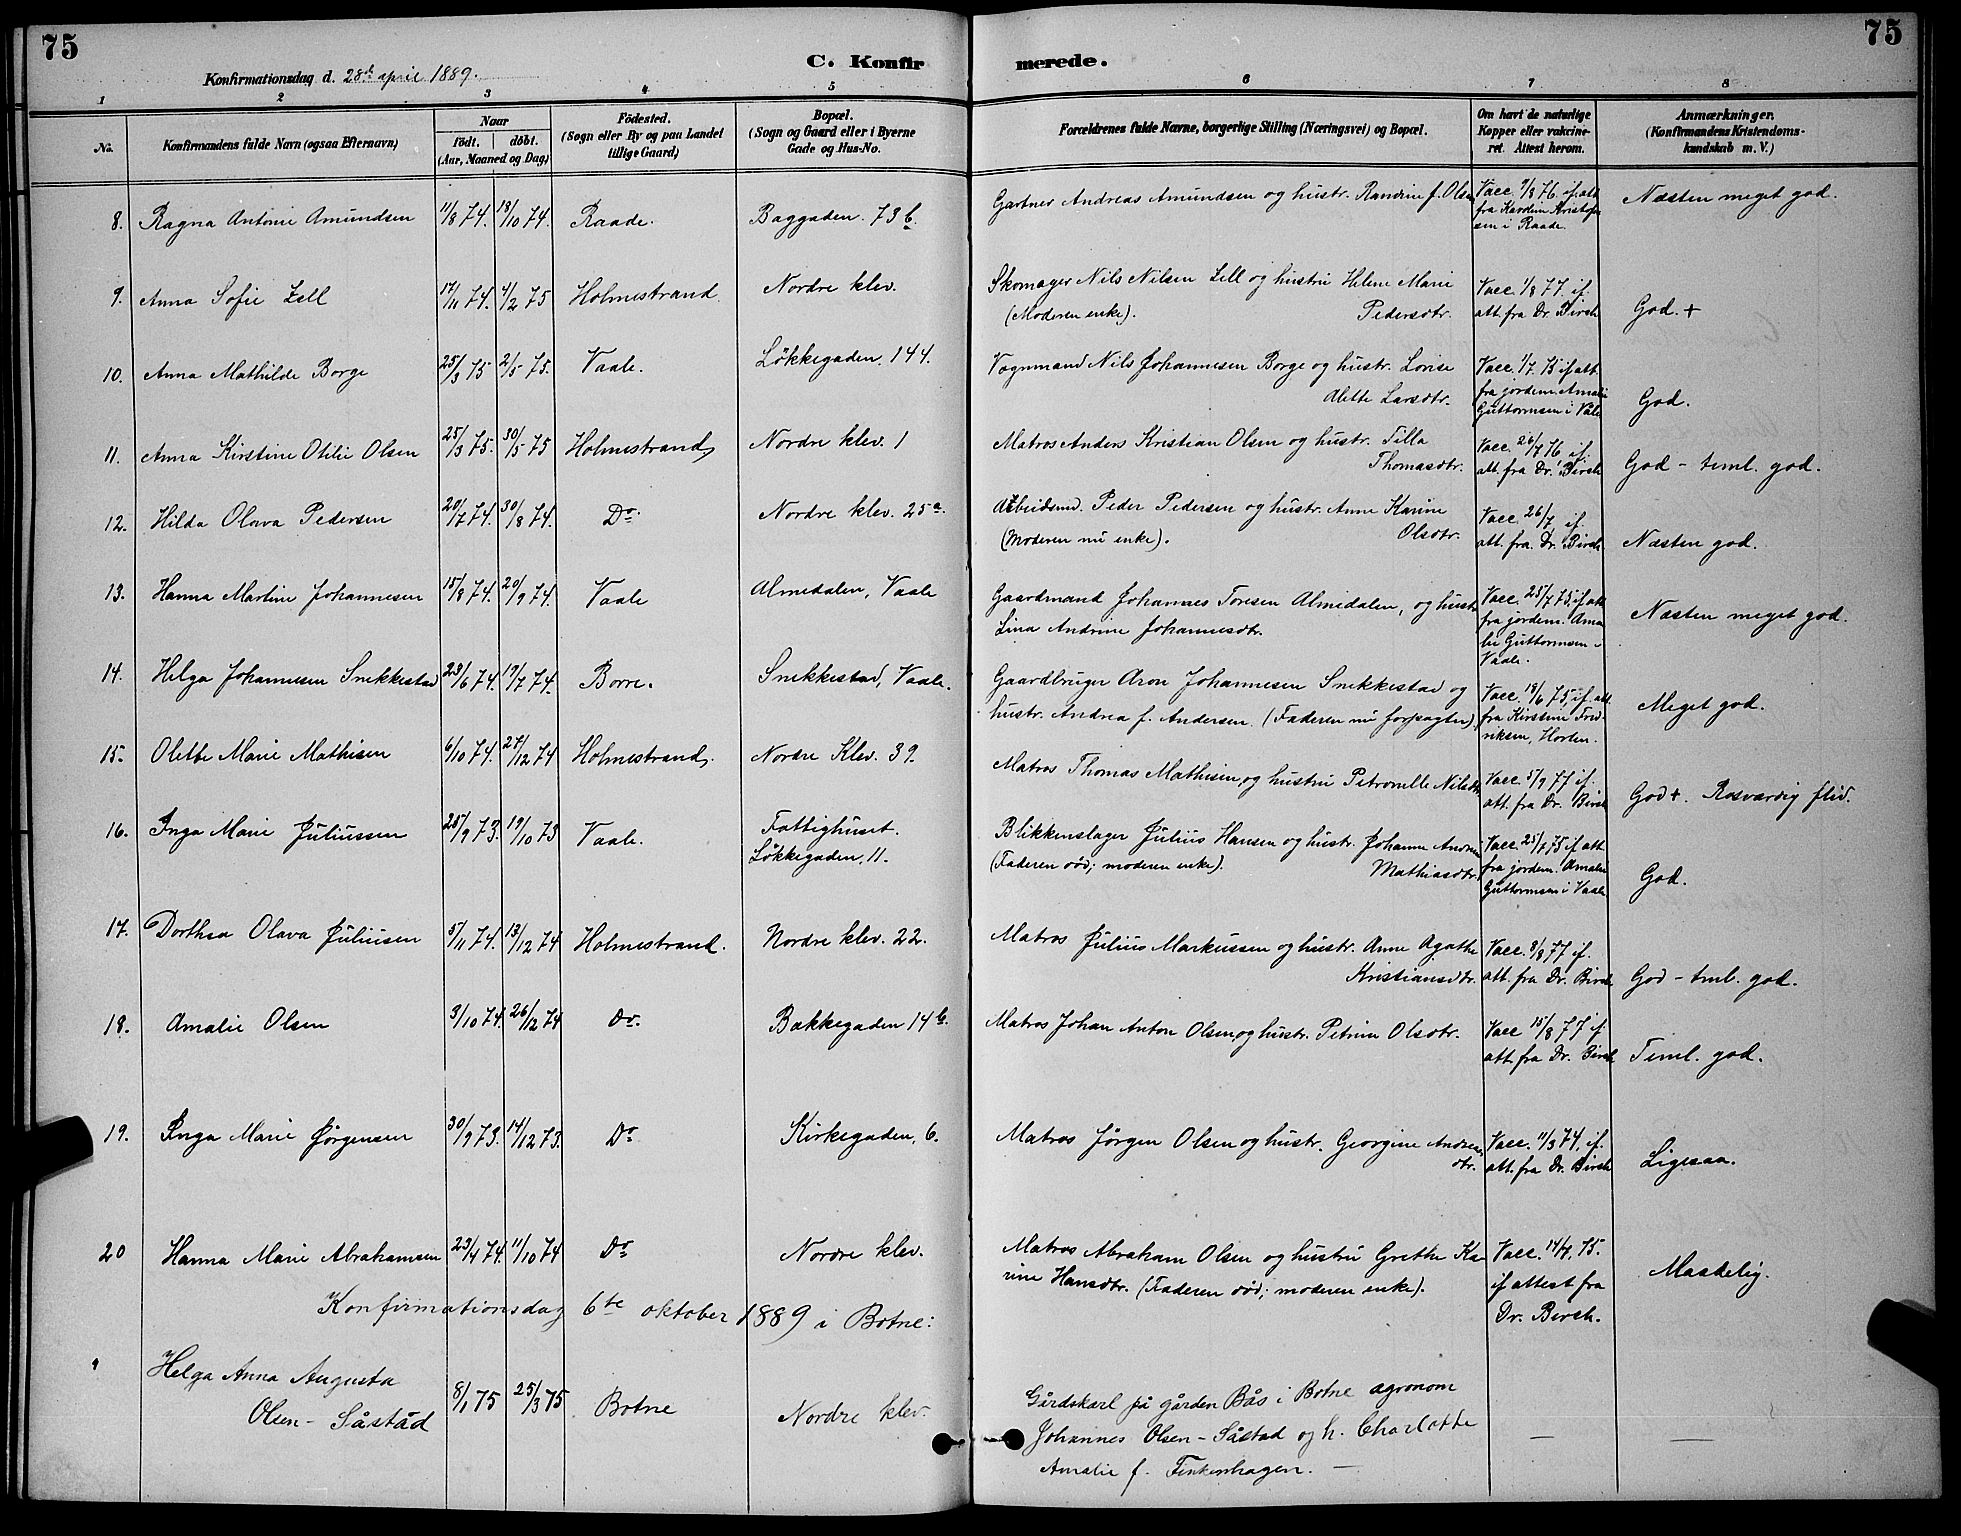 75
75
C. Konfir
merede.
Konfirmationsdag d. 28de april 1889.
1 2 3 4 5 6 7 8
No.
Konfirmandens fulde Navn (ogsaa Efternavn)
Naar
födt. döbt.
(Aar, Maaned og Dag)
Födested.
(Sogn eller By og paa Landet
tillige Gaard)
Bopæl.
(Sogn og Gaard eller i Byerne
Gade og Hus-No.
Forældrenes fulde Navne, borgerlige Stilling (Næringsvei) og Bopæl.
Om havt de naturlige
Kopper eller vakcine-
ret. Attest herom.
Anmærkninger.
(Konfirmandens Kristendoms-
kundskab m. V.)
8. Ragna Antonie Amundsen 11/8 74. 18/10 74. Raade. Baggaden. 73 b. Gartner Andreas Amundsen og hustr. Randine f. Olsen Vacc. 9/8 76 if. att. Næsten meget god.
fra
i Raade.
9. Anna Sofie Lell 17/11 74. 4/2 75 Holmestrand Nordre klev. Skomager Nils Nilsen Lell og hustru Helene Marie Vacc. 1/8 77. if. God. +
(Moderen enke). Pedersdtr. att. fra Dr. Birch
10. Anna Mathilde Borge 25/3 75 2/5 75. Vaale. Løkkegaden. 144. Vognmand Nils Johannesen Borge og hustr. Lovise Vacc. 1/7. 75 if att. God.
Alette Larsdtr. fra jordem. Amalie
Guttormsen i Vale
11. Anna Kirstine Otilie Olsen 25/3 75. 30/5 75 Holmestrand Nordre klev. 1 Matros Anders Kristian Olsen og hustr. Tilla Vacc. 26/7 76 if. God - teml. god.
Thomasdtr. att. fra Dr. Birch
12. Hilda Olava Pedersen 20/7 74. 30/8 74. Do. Nordre klev. 25 a. Arbeidsmd. Peder Pedersen og hustr. Anne Karine Vacc. 26/7, if. Næsten god.
(Moderen nu enke). Olsdtr. att. fra. Dr. Birch.
13. Hanna Martine Johannesen 15/8 74. 20/9 74. Vaale Almedalen, Vaale Gaardmand Johannes Toresen Almedalen, og hustr. Vacc. 25/7 75. if att. Næsten meget god.
Lina Andrine Johannesdtr. fra jordem. Ama
lie Guttormsen i
Vaale.
14. Helga Johannesen Snekkestad 23/6 74. 19/7 74. Borre. Snekkestad, Vaale. Gaardbruger Aron Johannesen Snekkestad og Vacc. 18/6 75, if att. Meget god.
hustr. Andrea f. Andersen. (Faderen nu forpagter) fra Kirstine Fred-
riksen, Horten.
15. Olette Marie Mathisen 6/10 74. 27/12 74 Holmestrand. Nordre Klev. 39. Matros Thomas Mathisen og hustru Petronelle Nilsdtr. Vacc. 5/9 77 if. God +. Rosværdig flid.
att. fra Dr. Birch
16. Inga Marie Juliussen 25/9 73. 19/10 73 Vaale. Fattighuset. Blikkenslager Julius Hansen og hustr. Johanne Andrea Vacc. 25/7 75 if att. God.
Løkkegaden. 11. (Faderen død; moderen enke). Mathiasdtr. fra jordem. Amalie
Guttormsen i Vaale
17. Dorthea Olava Juliusen 5/11 74. 13/12 74 Holmestrand. Nordre klev. 22. Matros Julius Markussen og hustr. Anne Agathe Vacc. 8/8 77 if. God - tml. god.
Kristiansdtr. att. fra Dr. Birch.
18. Amalie Olsen 3/10 74. 26/12 74 Do. Bakkegaden 14 b. Matros Johan Anton Olsen og hustr. Petrine Olsdtr. Vacc 15/8 77 if Teml. god.
att. fra Dr. Birch
19. Inga Marie Jørgensen 30/9 73. 14/12 73. Do Kirkegaden, 6. Matros Jörgen Olsen og hustr. Georgine Andreas- Vacc. 11/3 74, if. Ligesaa.
dtr. att. fra Dr. Birch
20 Hanna Marie Abrahamsen 23/4 74. 11/10 74 Do Nordre klev. Matros Abraham Olsen og hustru Grethe Ka- Vacc. 14/7. 75. Maadelig.
rine Hansdtr. (Faderen død; moderen enke). if attest fra
Dr. Birch.
Konfirmationsdag 6te oktober 1889 i Botne:
1 Helga Anna Augusta 8/1 75 25/3 75 Botne Nordre klev. Gårdskarl på gården Bås i Botne agronom
Olsen-Såstad Johannes Olsen-Såstad og h. Charlotte — —
Amalie f. Finkenhagen. —